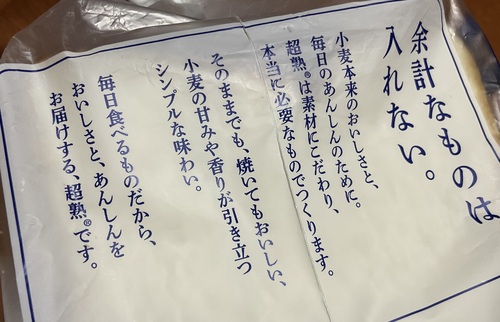 余計なものは
入れない。
小麦本来のおいしさと、
毎日のあんしんのために。
超熟®は素材にこだわり、
本当に必要なものでつくります。
そのままでも、焼いてもおいしい、
小麦の甘みや香りが引き立つ
シンプルな味わい。
毎日食べるものだから、
おいしさと、あんしんを
お届けする、超熟®です。